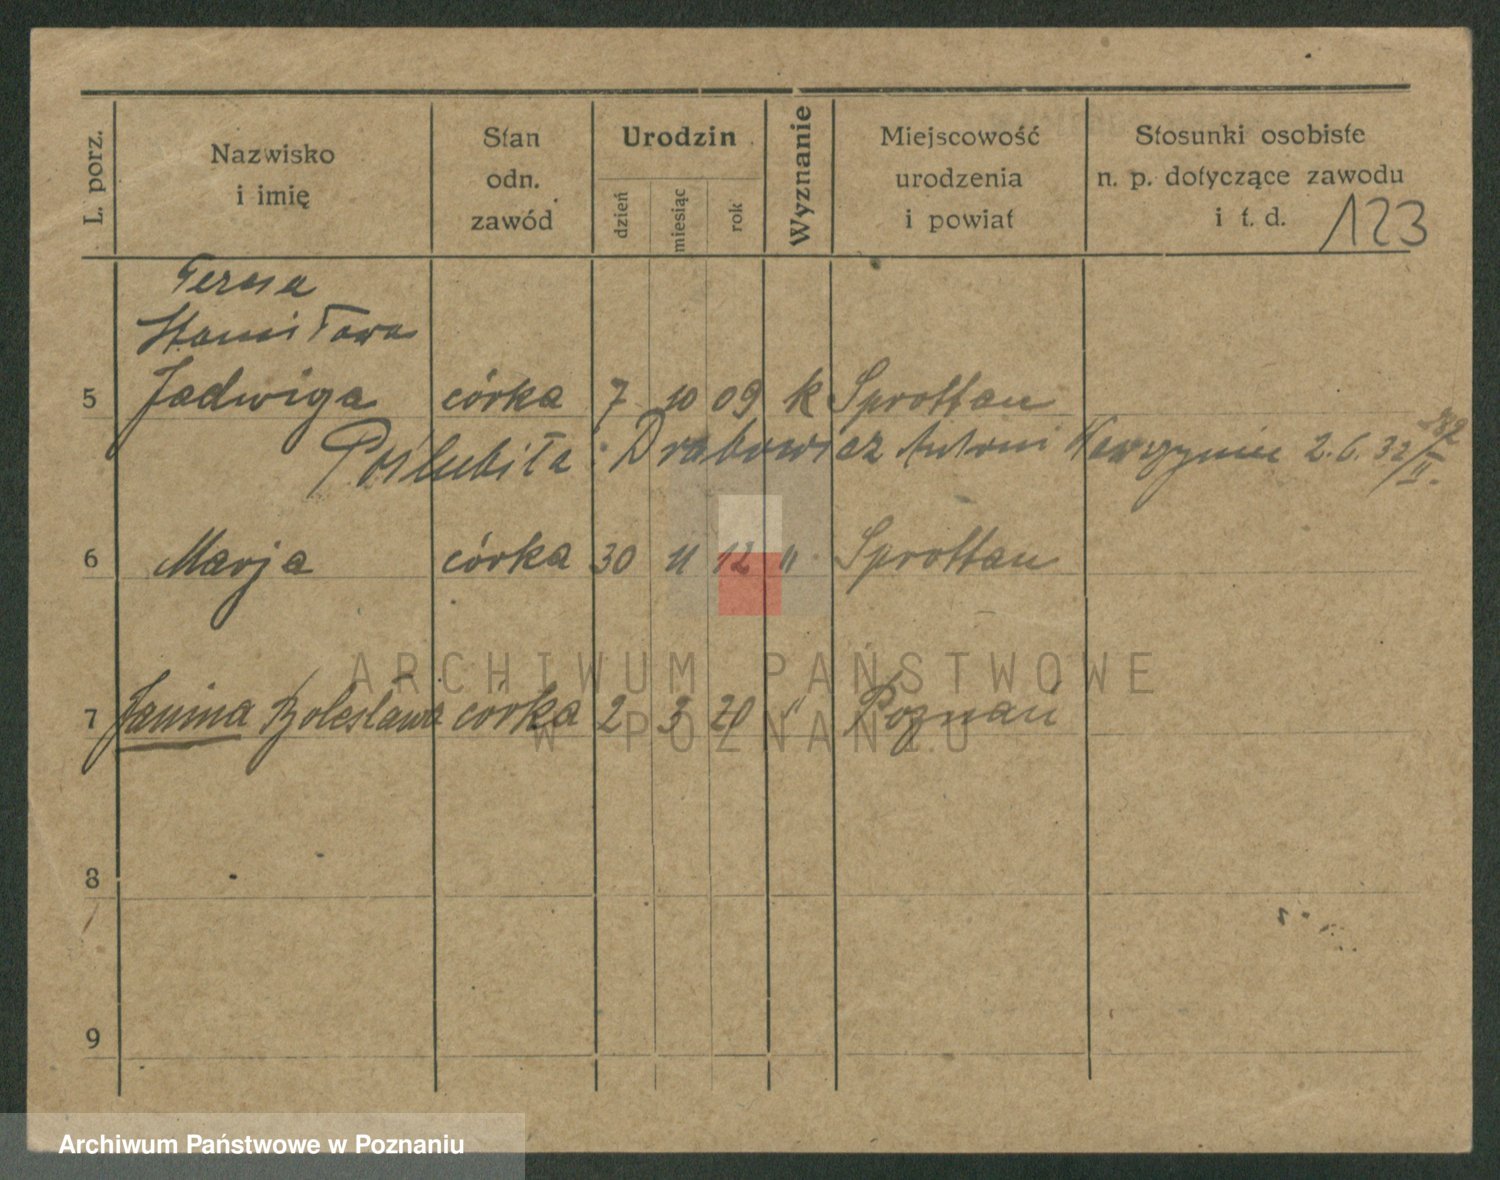 L. porz.
Nazwisko
i imię
Stan
odn.
zawód
Urodzin
dzień
miesiąc
rok
Wyznanie
Miejscowość
urodzenia
i powiat
Stosunki osobiste
n. p. dotyczące zawodu
i t. d.
123
Teresa
Stanisława
5 Jadwiga córka 7 10 09 k Sprottau
Poślubiła: Drabowicz Antoni Wawrzyniec 2. 6. 32/II.
6 Marja córka 30 11 12 " Sprottau
ARCHIWUM PAŃSTWOWE
7 Janina Bolesława córka 2 3 20 " Poznań
W POZNANIU
8
9
Archiwum Państwowe w Poznaniu